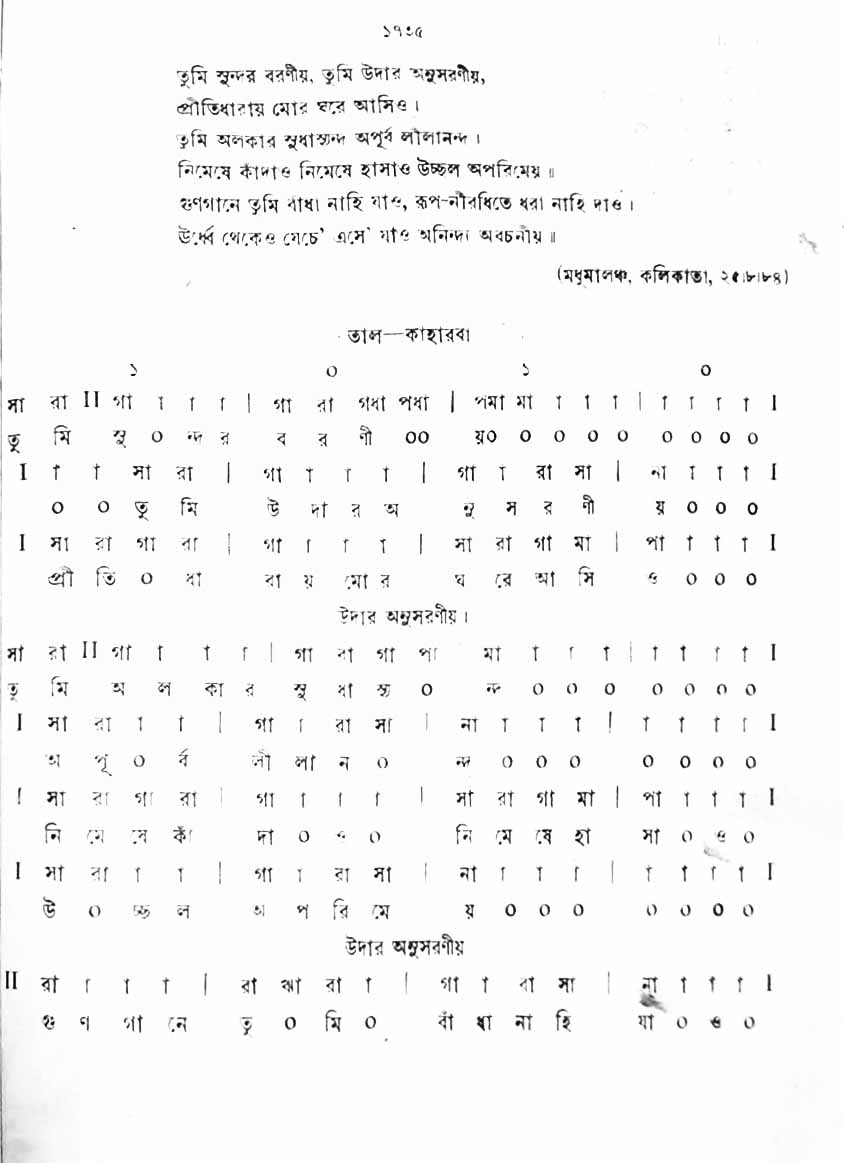 ১৭৩৫
তুমি সুন্দর বরণীয়, তুমি উদার অনুসরণীয়,
প্রীতিধারায় মোর ঘরে আসিও।
তুমি অলকার সুধাস্যন্দ অপূর্ব লীলানন্দ।
নিমেষে কাঁদাও নিমেষে হাসাও উচ্ছল অপরিমেয়॥
গুণগানে তুমি বাঁধা নাহি যাও, রূপ-নীরধিতে ধরা নাহি দাও।
ঊর্ধ্বে থেকেও যেচে’ এসে’ যাও অনিন্দ্য অবচনীয়॥
(মধুমালঞ্চ, কলিকাতা, ২৫।৮।৮৪)
তাল—কাহারবা
১ ০ ১ ০
সা রা II গা া া া | গা রা গধা পধা | পমা মা া া া | া া া া I
তু মি সু ০ ন্দ র ব র ণী ০০ য়০ ০ ০ ০ ০ ০ ০ ০ ০
I া া সা রা | গা া া া | গা া রা সা | না া া া I
০ ০ তু মি উ দা র অ নু স র ণী য় ০ ০ ০
I সা রা গা রা | গা া া া | সা রা গা মা | পা া া া I
প্রী তি ০ ধা রা য় মো র ঘ রে আ সি ও ০ ০ ০
উদার অনুসরণীয়।
সা রা II গা া া া | গা রা গা পা মা া া া | া া া া I
তু মি অ ল কা র সু ধা স্য ০ ন্দ ০ ০ ০ ০ ০ ০ ০
I সা রা া া | গা া রা সা | না া া া | া া া া I
অ পূ ০ র্ব লী লা ন ০ ন্দ ০ ০ ০ ০ ০ ০ ০
I সা রা গা রা | গা া া া | সা রা গা মা | পা া া া I
নি মে সে কাঁ দা ০ ও ০ নি মে ষে হা সা ০ ও ০
I সা রা া া | গা া রা সা | না া া া | া া া া I
উ ০ চ্ছ ল অ প রি মে য় ০ ০ ০ ০ ০ ০ ০
উদার অনুসরণীয়
II রা া া া | রা ঝা রা া | গা া রা সা | না া া া I
গু ণ গা নে তু ০ মি ০ বাঁ ধা না হি যা ০ ও ০